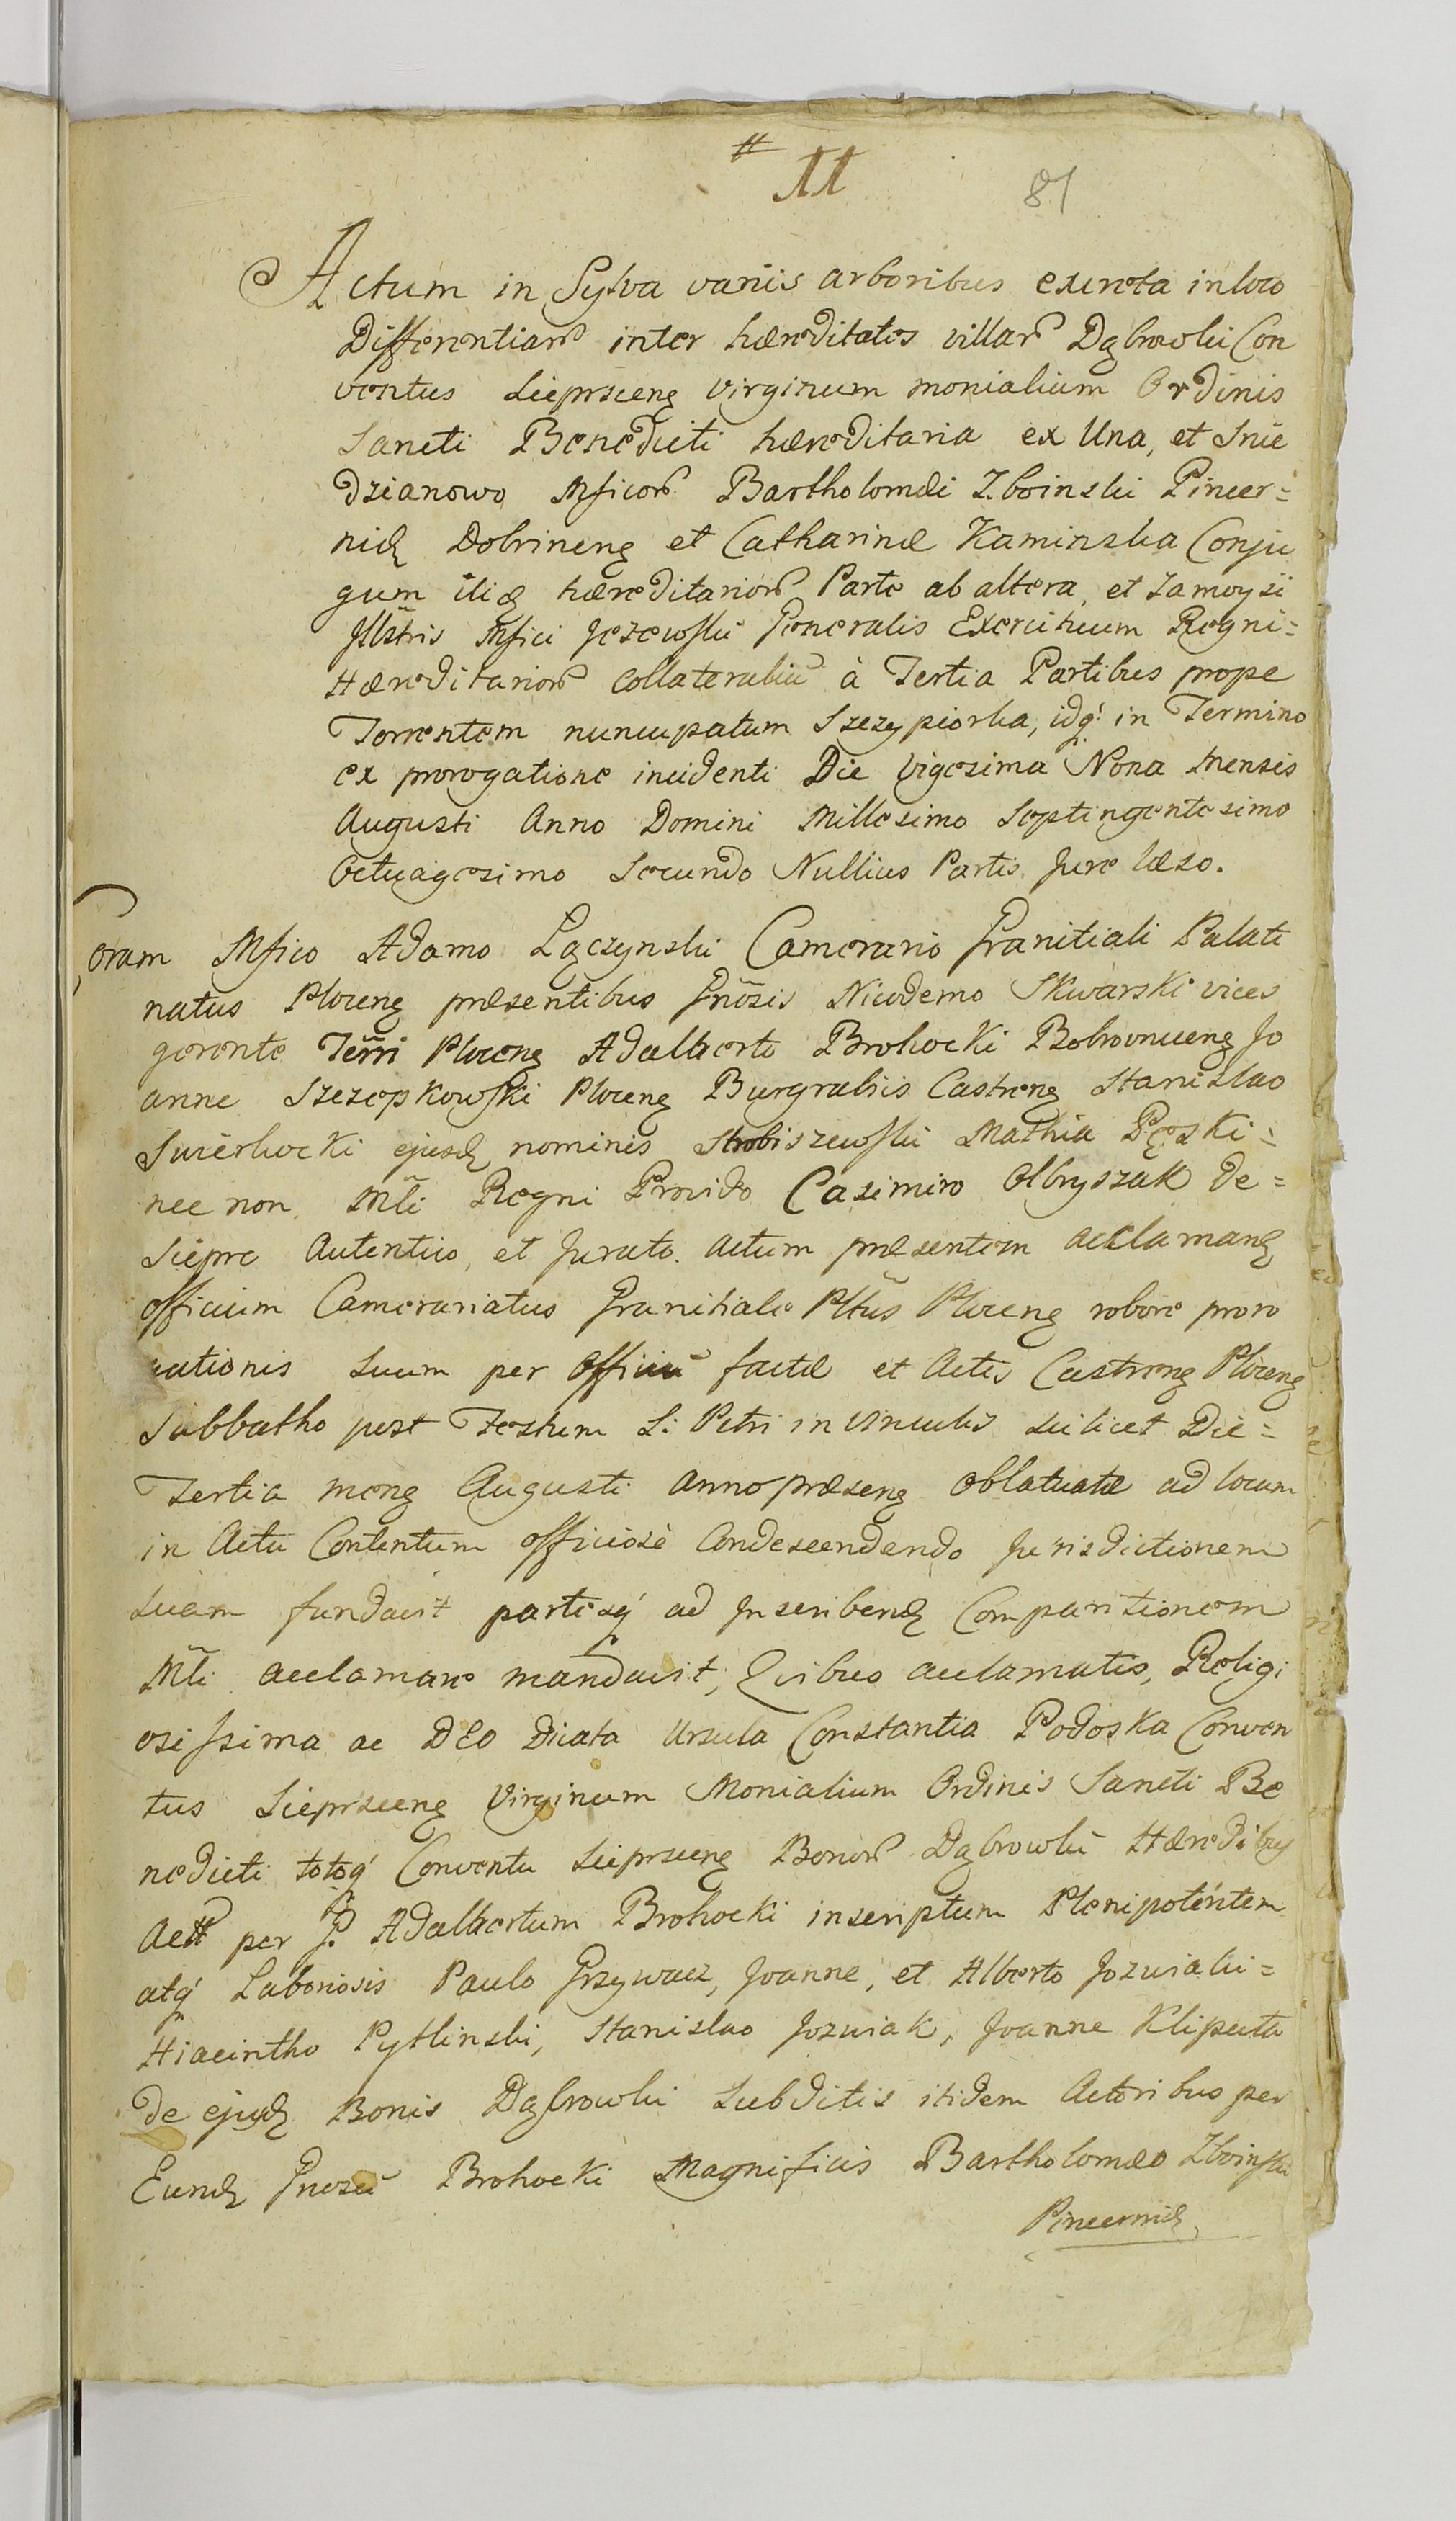 #
11
81
Actum in Sylva variis arboribus excreta in loco
Differentiarꝫ inter hæreditates villarꝫ Dąbrowki Con
ventus Sieprscenꝫ Virginum monialium Ordinis
Sancti Benedicti hæreditaria ex Una, et Snie
dzianowo Mficorꝫ Bartholomæi Zboinski Pincer=
nidꝫ Dobrinenꝫ et Catharinæ Kaminska Conju
gum itidꝫ hæreditariorꝫ Parte ab altera, et Zamoysi
Jllstris Mfici Jezewski Generalis Exercituum Regni=
Hæreditariorꝫ collateraliũ à Tertia Partibus prope
Torrentem nuncupatum Szczypiorka, idqꝫ in Termino
ex prorogatione incidenti Die Vigesima Nona Mensis
Augusti Anno Domini Millesimo Septingentesimo
Octuagesimo Secundo Nullius Partis Jure læso.
Coram Mfico Adamo Łączynski Camerario Granitiali Palati
natus Plocenꝫ præsentibus Gnõsis Nicodemo Skwarski vices
gerente Terrĩ Plocenꝫ Adalberto Brochocki Bobrovnicenꝫ Jo
anne Szczepkowski Plocenꝫ Burgrabiis Castrenꝫ Stanislao
Swierkocki ejusdꝫ nominis Strobiszewski Mathia Pęski=
nec non Mlĩ Regni Provido Casimiro Olbryszak de=
Siepre Autentico, et Jurato. Actum præsentem acclamandꝫ
officium Camerariatus Granitiale Pltũs Plocenꝫ robore proro
gationis Suum per Officiũ factæ et Actis Castrenꝫ Plocenꝫ
Sabbatho post Festum S: Petri in Vinculis scilicet Die=
Tertia mensꝫ Augusti anno præsenꝫ oblatuatæ ad locum
in Actu Contentum officiosè Condescendendo Jurisdictionem
suam fundavit partesqꝫ ad Inscribendꝫ Comparitionem
Mlĩ acclamare mandavit, Quibus acclamatis, Religi
osissima ac DEO Dicata Ursula Constantia Podoska Conven
tus Sieprscenꝫ Virginum Monialium Ordinis Sancti Be
nedicti totoqꝫ Conventu Sieprscenꝫ Bonorꝫ Dąbrowki Hæredibꝫ
Actꝫ per G. Adalbertum Brochocki inscriptum Plenipotentem
atqꝫ Laboriosis Paulo Grzywacz, Joanne, et Alberto Jozwiaki=
Hiacintho Pytlinski, Stanislao Jozwiak, Joanne Klipeuta
de ejusdꝫ Bonis Dąbrowki Subditis itidem Actoribus per
Eundꝫ Gnosũ Brochocki Magnificis Bartholomæo Zboinski
Pincernidꝫ